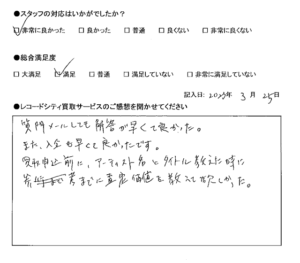 ●スタッフの対応はいかがでしたか？
☑非常に良かった □良かった □普通 □良くない □非常に良くない
●総合満足度
□大満足 ☑満足 □普通 □満足していない □非常に満足していない
記入日: 2023年 3月 25日
●レコードシティ買取サービスのご感想を聞かせてください
質問メールしても解答が早くて良かった。
また、入金も早くて良かったです。
買取申込前に、アーティスト名とタイトル教えた時に
までに査定価値を教えて欲しかった。